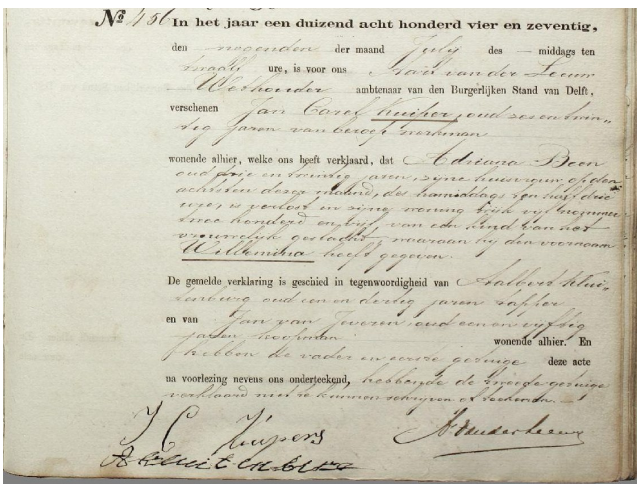 No 456 In het jaar een duizend acht honderd vier en zeventig,
den negenden der maand July des — middags ten
twaalf ure, is voor ons van der Leeuw
Wethouder ambtenaar van den Burgerlijken Stand van Delft,
verschenen Jan Carel Kuiper, oud zes en twin-
tig jaren van beroep werkman
wonende alhier, welke ons heeft verklaard, dat Adriana Boon
oud drie en twintig jaren, zijne huisvrouw, op den
achtsten dezer maand, des namiddags ten half drie
ure, is verlost in zijne woning wijk vijf nommer
twee honderd en vijf, van een kind van het
vrouwelijk geslacht, waaraan hij den voornaam
Willemina heeft gegeven.
De gemelde verklaring is geschied in tegenwoordigheid van Aalbert Klui-
tenburg oud een en dertig jaren sapper
en van Jan van Joveren, oud een en vijftig
jaren koopman wonende alhier. En
hebben de vader en eerste getuige deze acte
na voorlezing nevens ons onderteekend, hebbende de tweede getuige
verklaard niet te kunnen schrijven of teekenen. —
J C Kuipers
A Kluitenburg